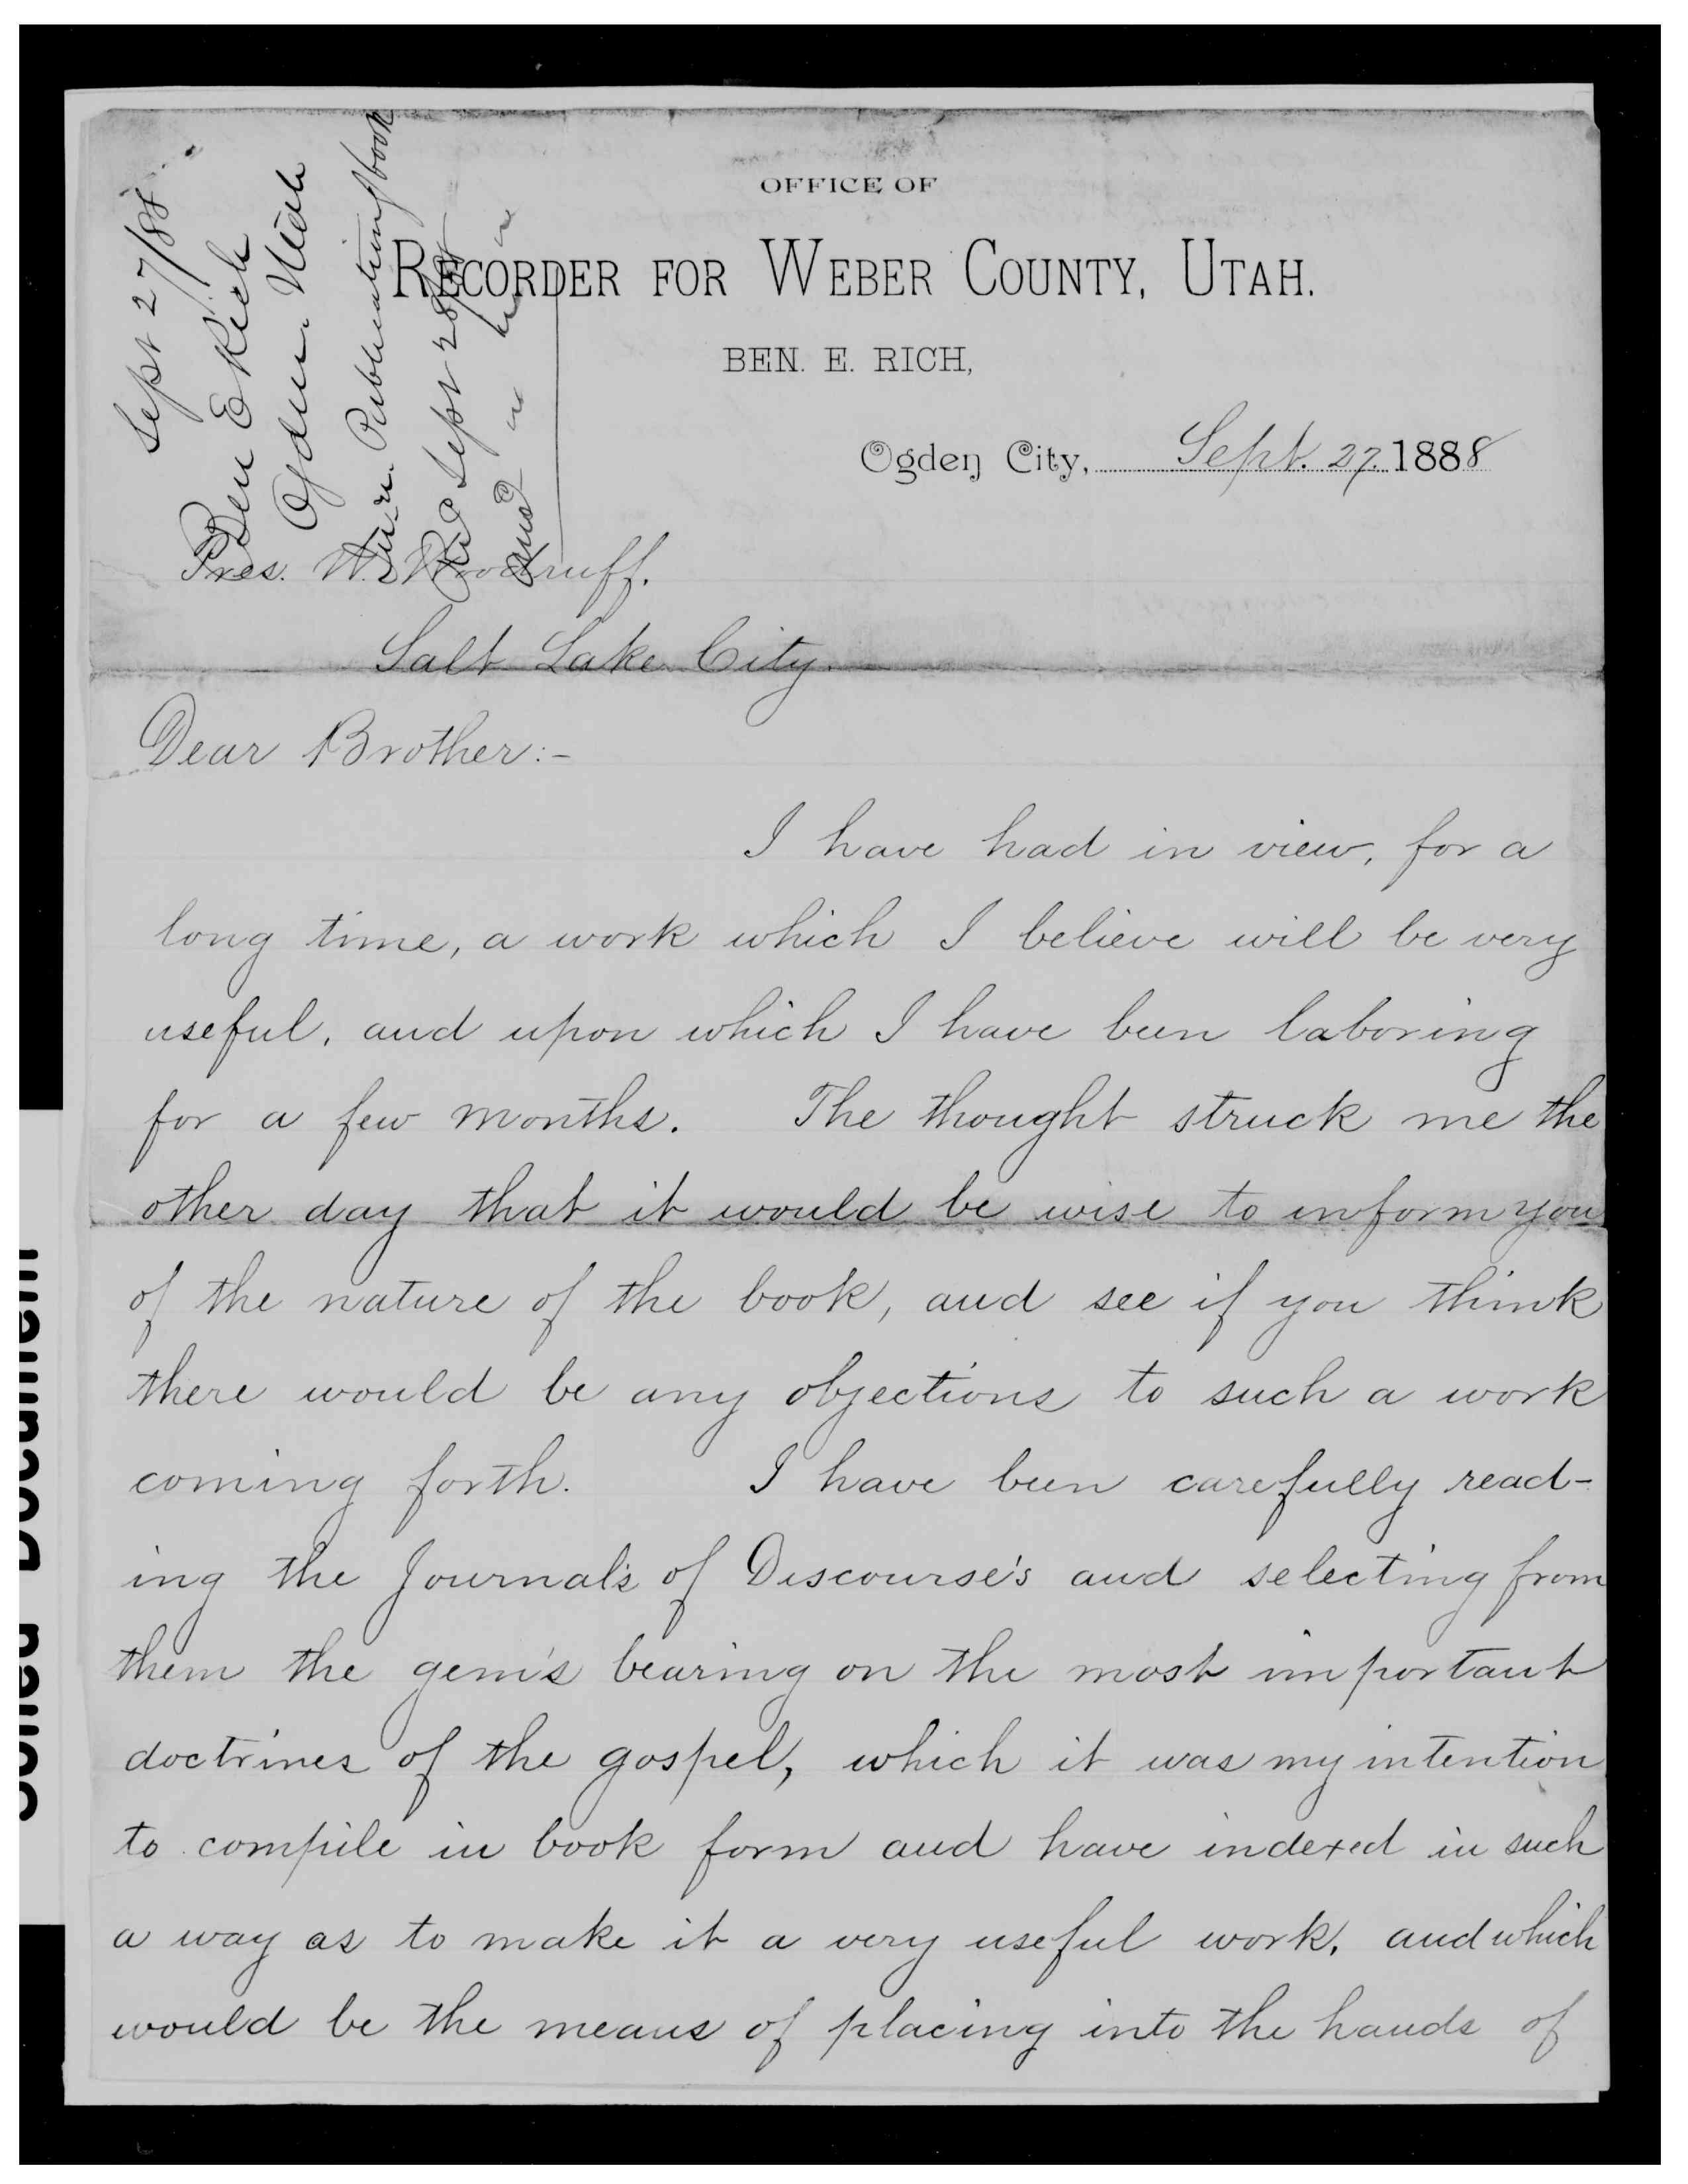 Sept 27/88
Ben E Rich
Ogden Utah
Publication of book
Rec Sept 28/88
ansd " " "
OFFICE OF
RECORDER FOR WEBER COUNTY, UTAH.
BEN. E. RICH,
Ogden City, Sept. 27. 1888
Pres. W. Woodruff.
Salt Lake City.
Dear Brother:-
I have had in view, for a
long time, a work which I believe will be very
useful, and upon which I have been laboring
for a few months. The thought struck me the
other day that it would be wise to inform you
of the nature of the book, and see if you think
there would be any objections to such a work
coming forth. I have been carefully read-
ing the Journal's of Discourse's and selecting from
them the gem's bearing on the most important
doctrines of the gospel, which it was my intention
to compile in book form and have indexed in such
a way as to make it a very useful work, and which
would be the means of placing into the hands of